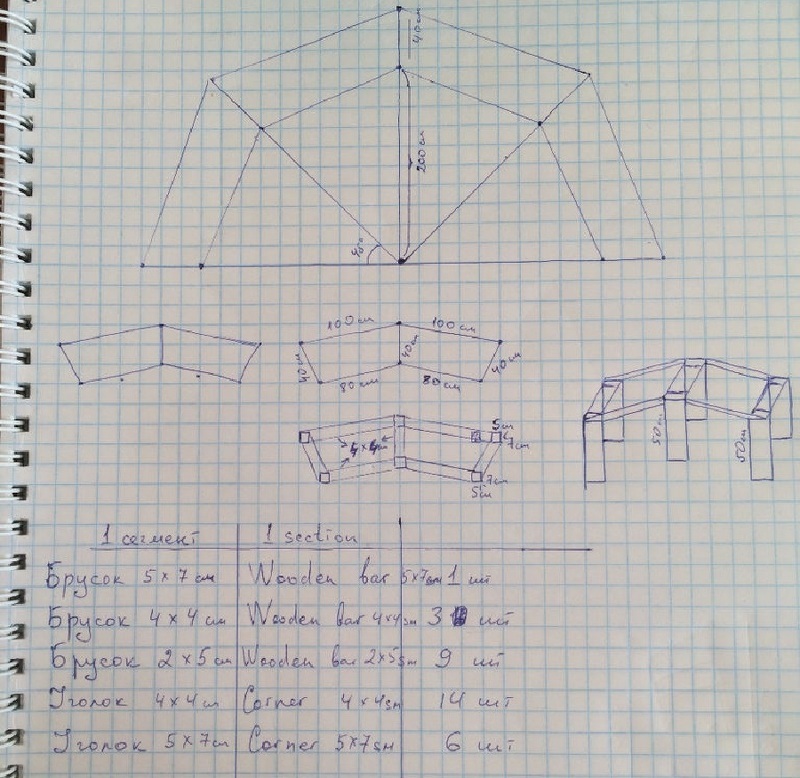 40 см
200 см
45°
100 см 100 см
40 см 40 см 40 см
80 см 80 см
5см
7см
4 x 4см
7см
5см
50 см 50 см
1 сегмент 1 section
Брусок 5 x 7 см Wooden bar 5x7см 1 шт
Брусок 4 x 4 см Wooden bar 4x4см 3 шт
Брусок 2 x 5 см Wooden bar 2x5см 9 шт
Уголок 4 x 4 см Corner 4 x 4см 14 шт
Уголок 5 x 7 см Corner 5x7см 6 шт